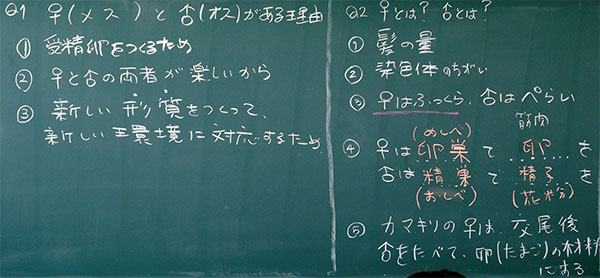 Q1 ♀(メス)と♂(オス)がある理由
① 受精卵をつくるため
② ♀と♂の両者が楽しいから
③ 新しい形質をつくって、
新しい環境に対応するため
Q2 ♀とは? ♂とは?
① 髪の量
② 染色体のちがい
③ ♀はふっくら、♂はぺらい
筋肉
(めしべ)
④ ♀は卵巣で 卵……を
♂は精巣で 精子を
(おしべ) (花粉)
⑤ カマキリの♀は、交尾後
♂をたべて、卵(たまご)の材料
にする